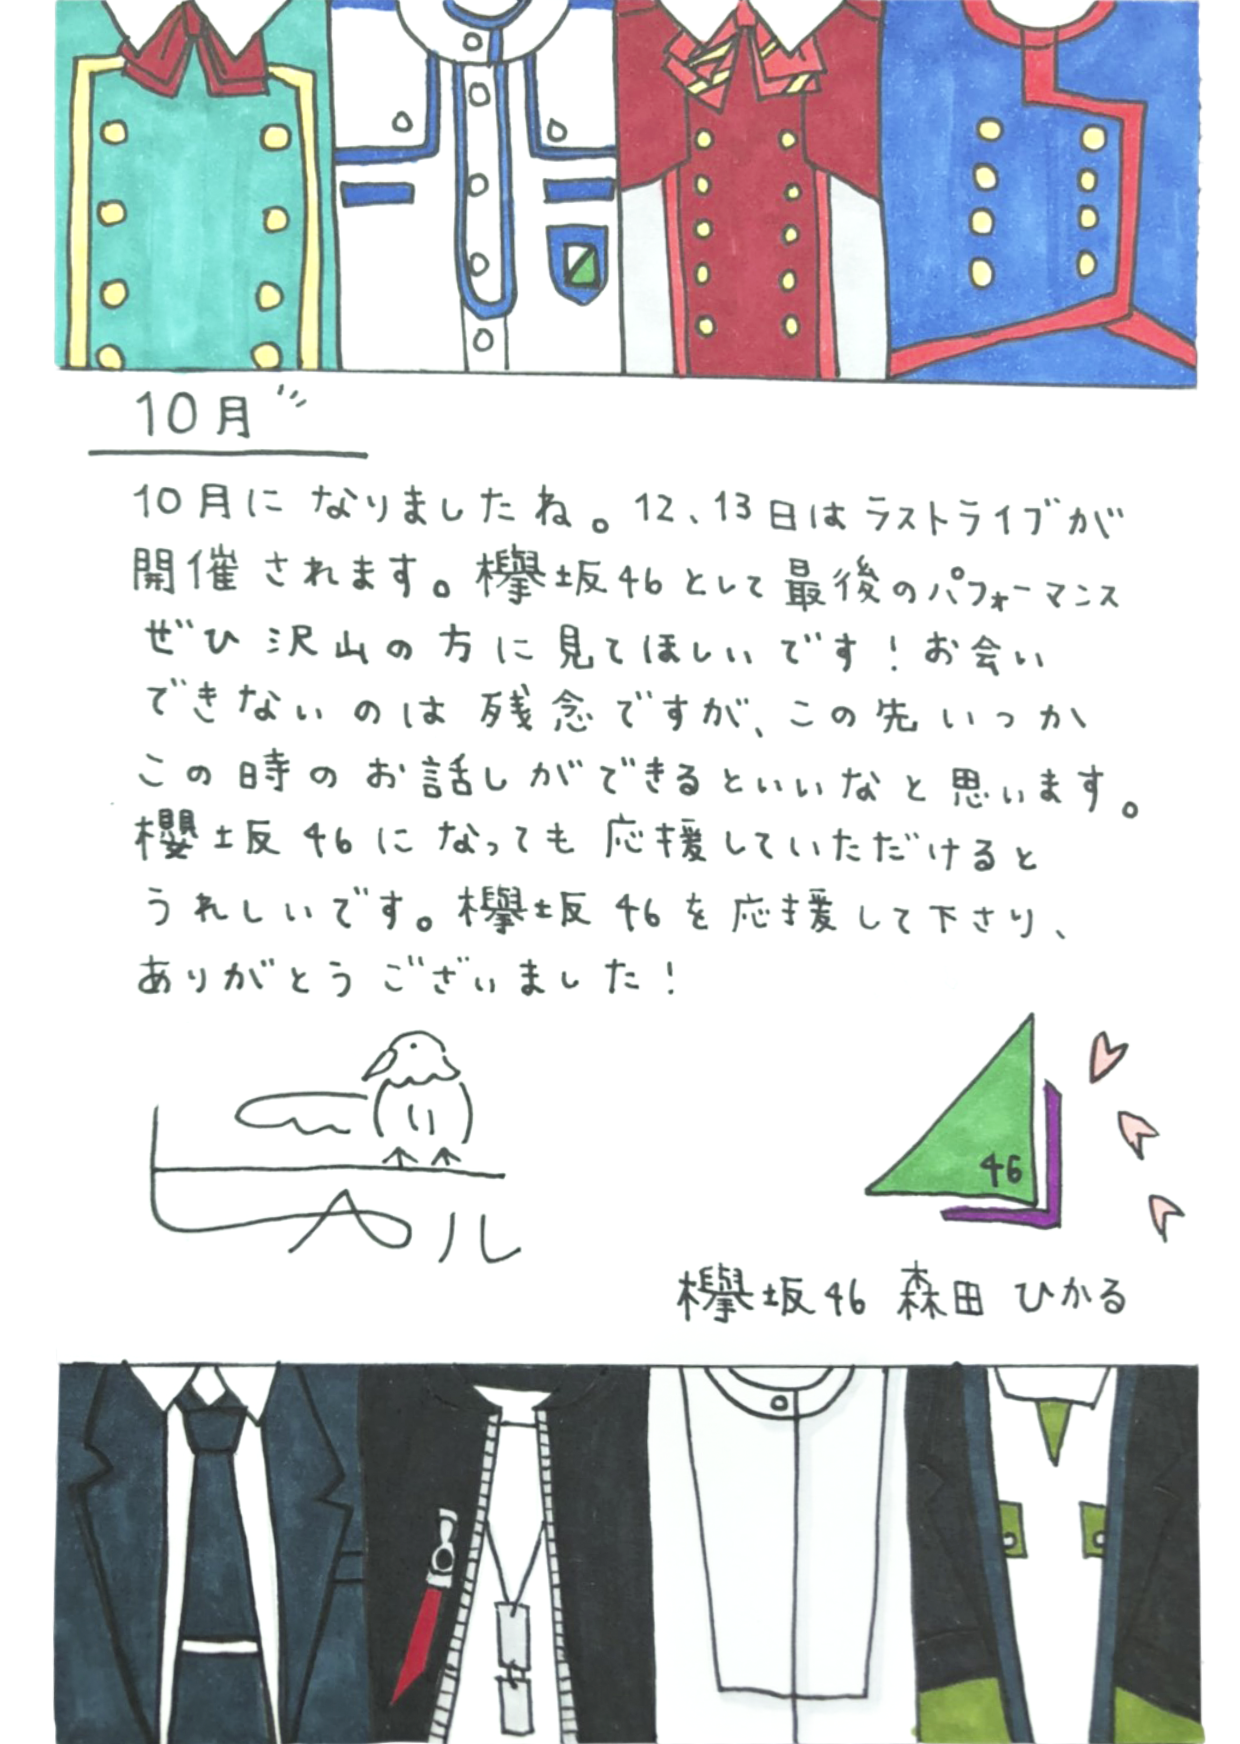 10月
10月になりましたね。12、13日はラストライブが
開催されます。欅坂46として最後のパフォーマンス
ぜひ沢山の方に見てほしいです！お会い
できないのは残念ですが、この先いつか
この時のお話しができるといいなと思います。
櫻坂46になっても応援していただけると
うれしいです。欅坂46を応援して下さり、
ありがとうございました！
46
欅坂46 森田ひかる